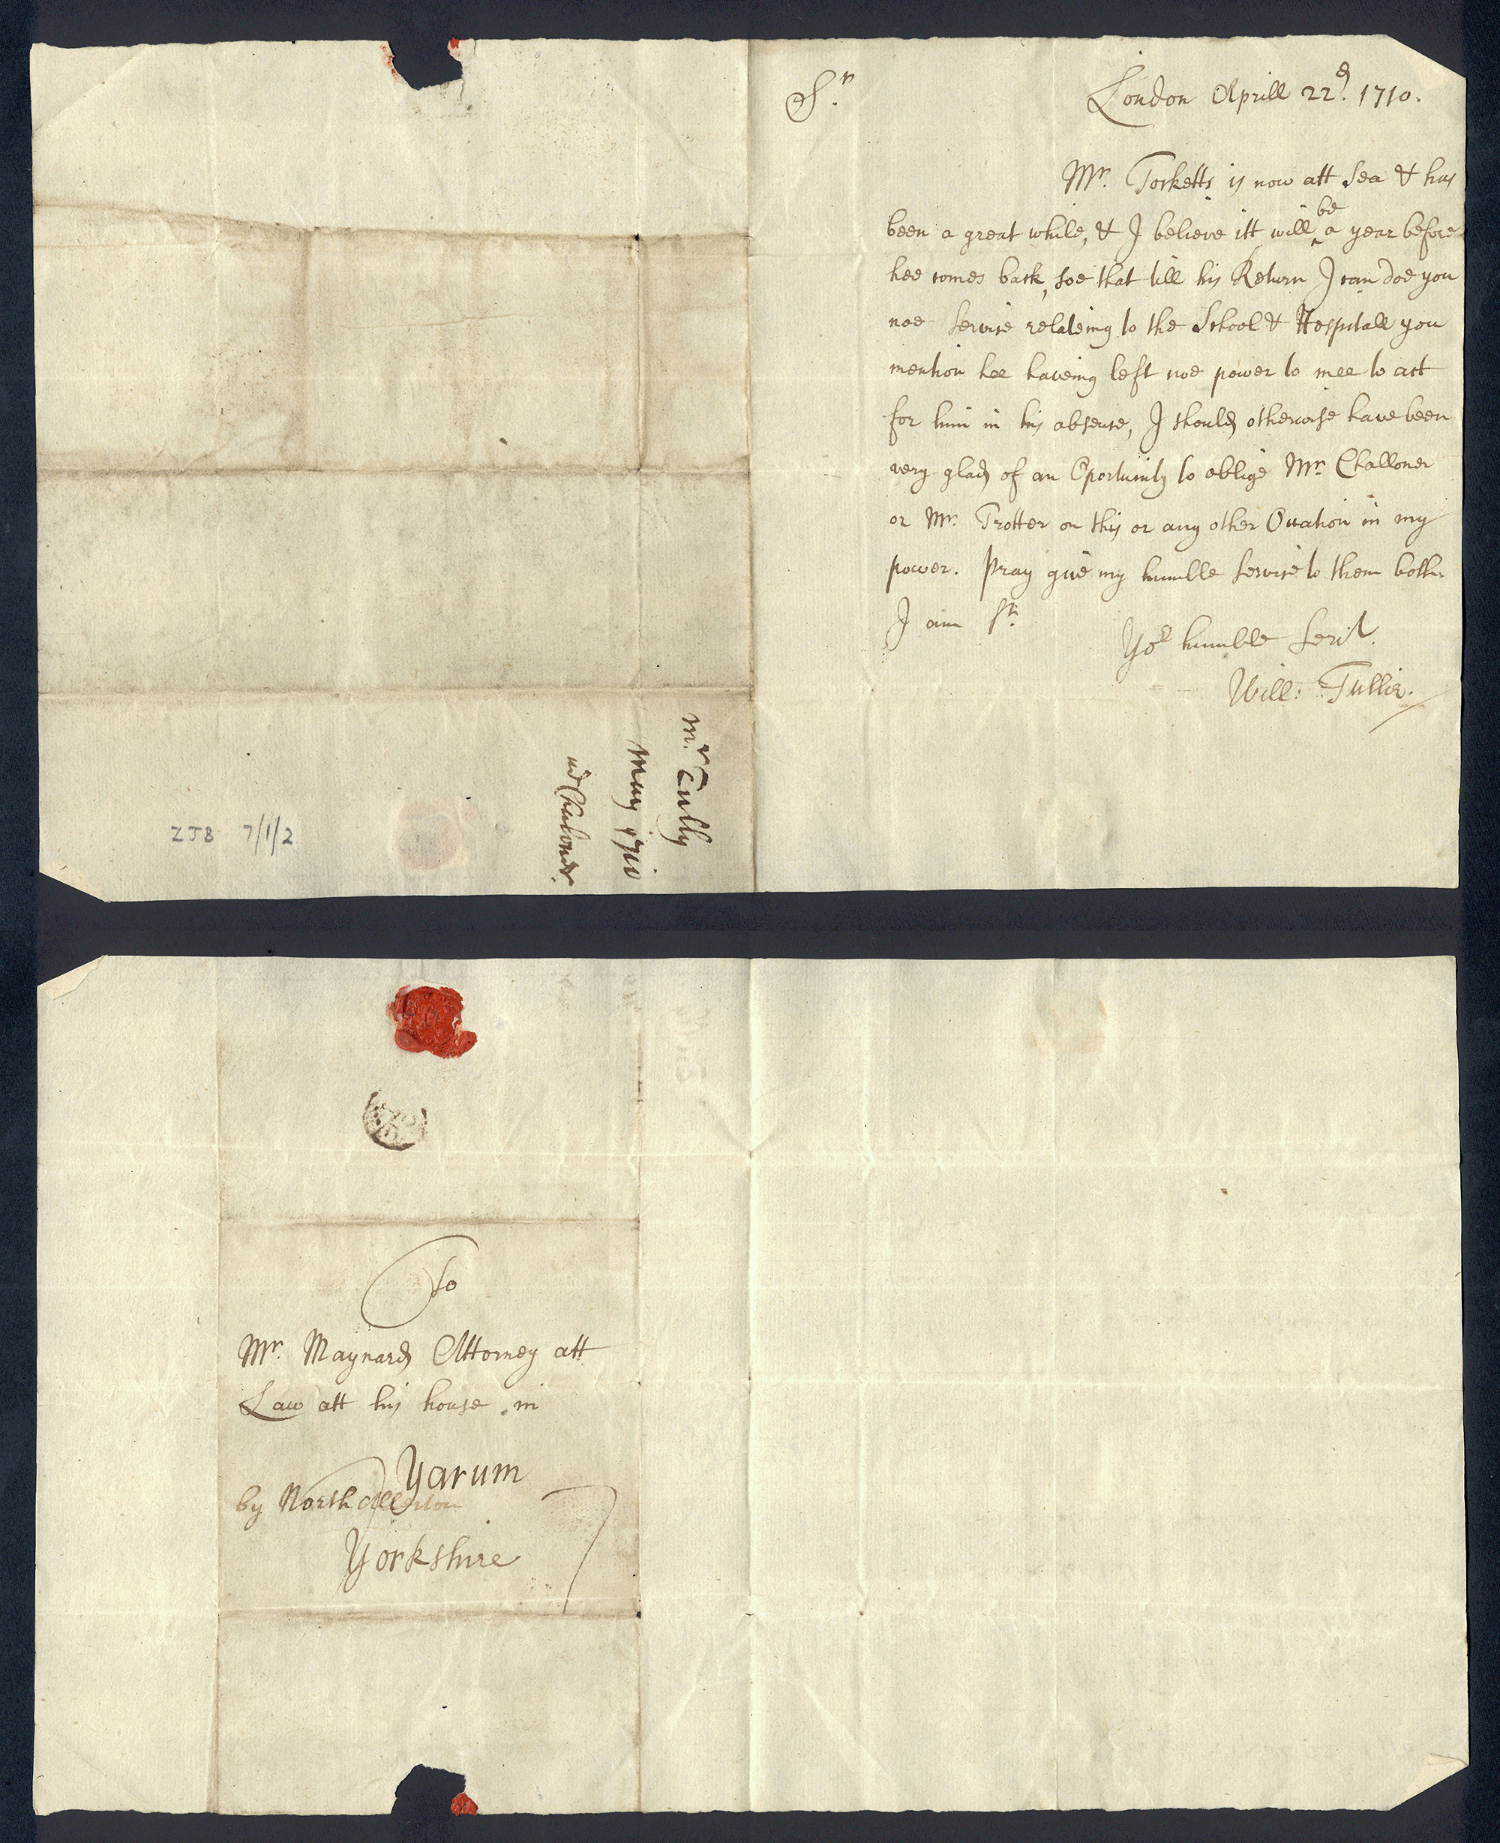 Sr.
London Aprill 22d. 1710.
Mr. Torketts is now att Sea & has
been a great while, & I believe itt will be a year before
hee comes back, soe that till his Return I can doe you
noe Service relateing to the School & Hospitall you
mention hee haveing left noe power to mee to act
for him in his absence, I should otherwise have been
very glad of an Oportunity to oblige Mr. Challoner
or Mr. Trotter on this or any other Occation in my
power. Pray give my humble Service to them both
I am Sr.
Yor humble Servt.
Will: Tullie.
Mr. Tully
May 1710
ZJB 7/1/2
To
Mr. Maynard Attorney att
Law att his house in
Yarum
by Northallerton
Yorkshire